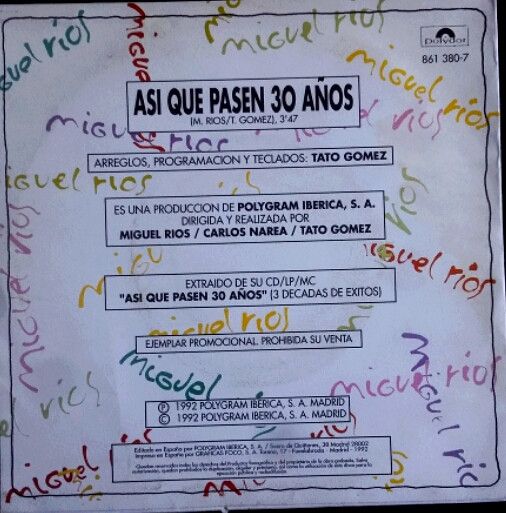 miguel rios
miguel rios
miguel rios
miguel rios
Polydor
861 380-7
ASI QUE PASEN 30 AÑOS
(M. RIOS/T. GOMEZ), 3'47
miguel rios
ARREGLOS, PROGRAMACION Y TECLADOS: TATO GOMEZ
miguel rios
ES UNA PRODUCCION DE POLYGRAM IBERICA, S. A.
DIRIGIDA Y REALIZADA POR
MIGUEL RIOS / CARLOS NAREA / TATO GOMEZ
miguel rios
miguel rios
EXTRAIDO DE SU CD/LP/MC
"ASI QUE PASEN 30 AÑOS" (3 DECADAS DE EXITOS)
miguel rios
EJEMPLAR PROMOCIONAL. PROHIBIDA SU VENTA
miguel rios
MIGUEL
miguel rios
Ⓟ 1992 POLYGRAM IBERICA, S. A. MADRID
© 1992 POLYGRAM IBERICA, S. A. MADRID
miguel rios
Editado en España por POLYGRAM IBERICA, S. A. / Suero de Quiñones, 38 Madrid 28002
Impreso en España por GRAFICAS FOCO, S. A. Torneros, 17 - Fuenlabrada - Madrid - 1992
miguel rios